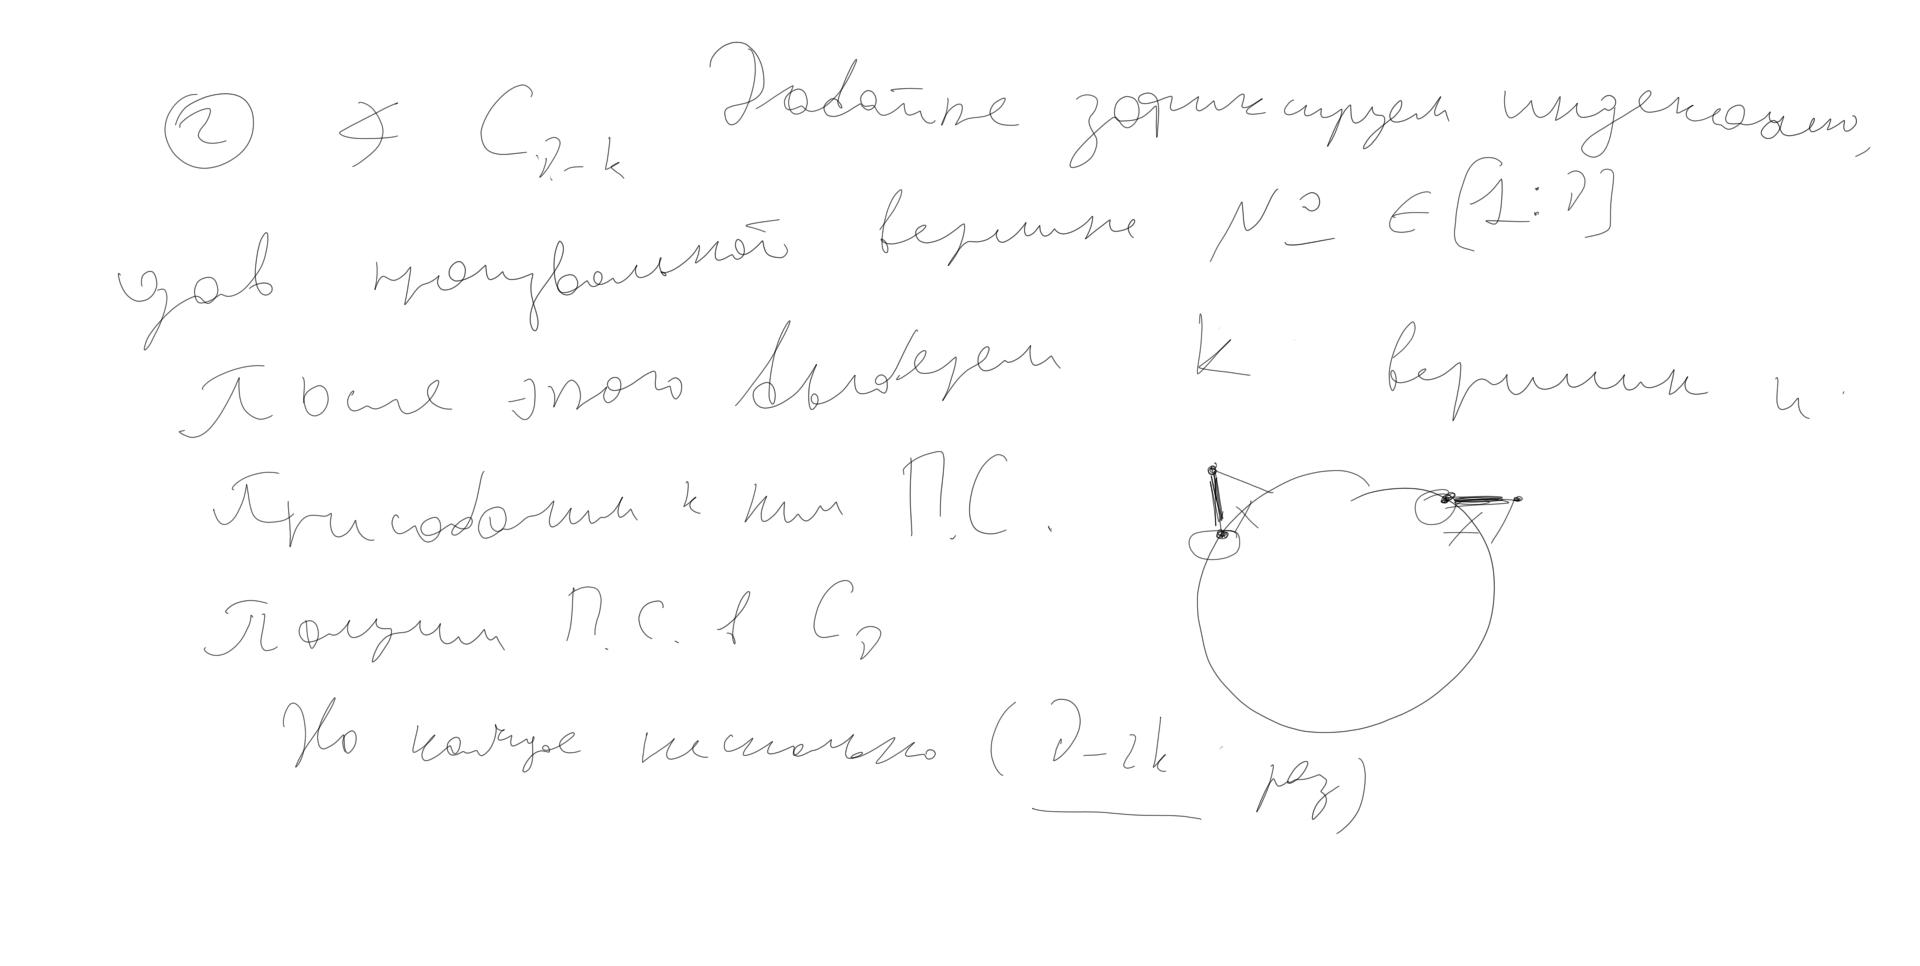 ② ∢ C_{D-k} Давайте зафиксируем индексацию,
дав произвольной вершине № ∈ [1:D]
После этого выберем k вершин и
Присобачим к ним П.С.
Получим П.С. в C_D
Но каждое несколько (D-2k раз)